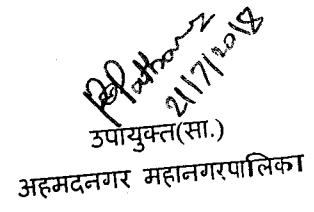 21/7/2018
उपायुक्त(सा.)
अहमदनगर महानगरपालिका